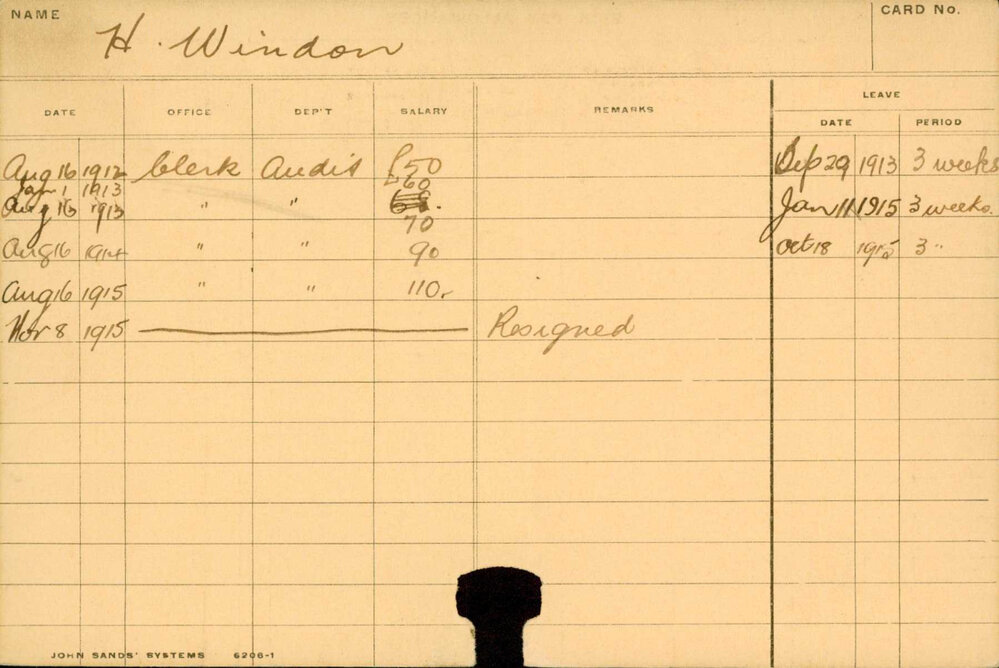 NAME
CARD No.
H. Windon
DATE OFFICE DEP'T SALARY REMARKS LEAVE
DATE PERIOD
Aug 16 1912 Clerk Audit £50 Sep 29 1913 3 weeks
Jan 1 1913 60
Aug 16 1913 " " 70 Jan 11 1915 3 weeks.
Aug 16 1914 " " 90 Oct 18 1915 3 "
Aug 16 1915 " " 110.
Nov 8 1915 Resigned
JOHN SANDS' SYSTEMS 6206-1